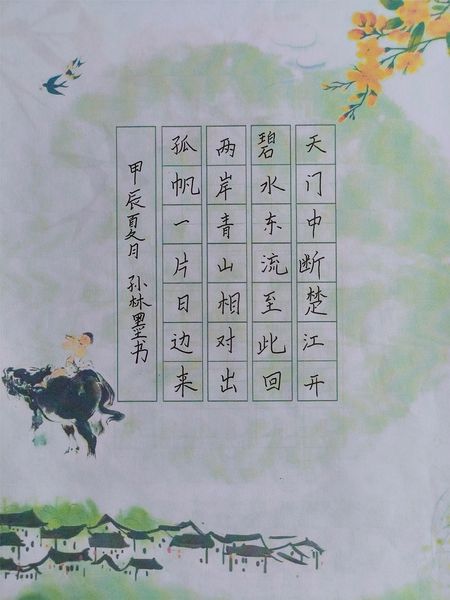 天门中断楚江开
碧水东流至此回
两岸青山相对出
孤帆一片日边来
甲辰夏月 孙林墨书